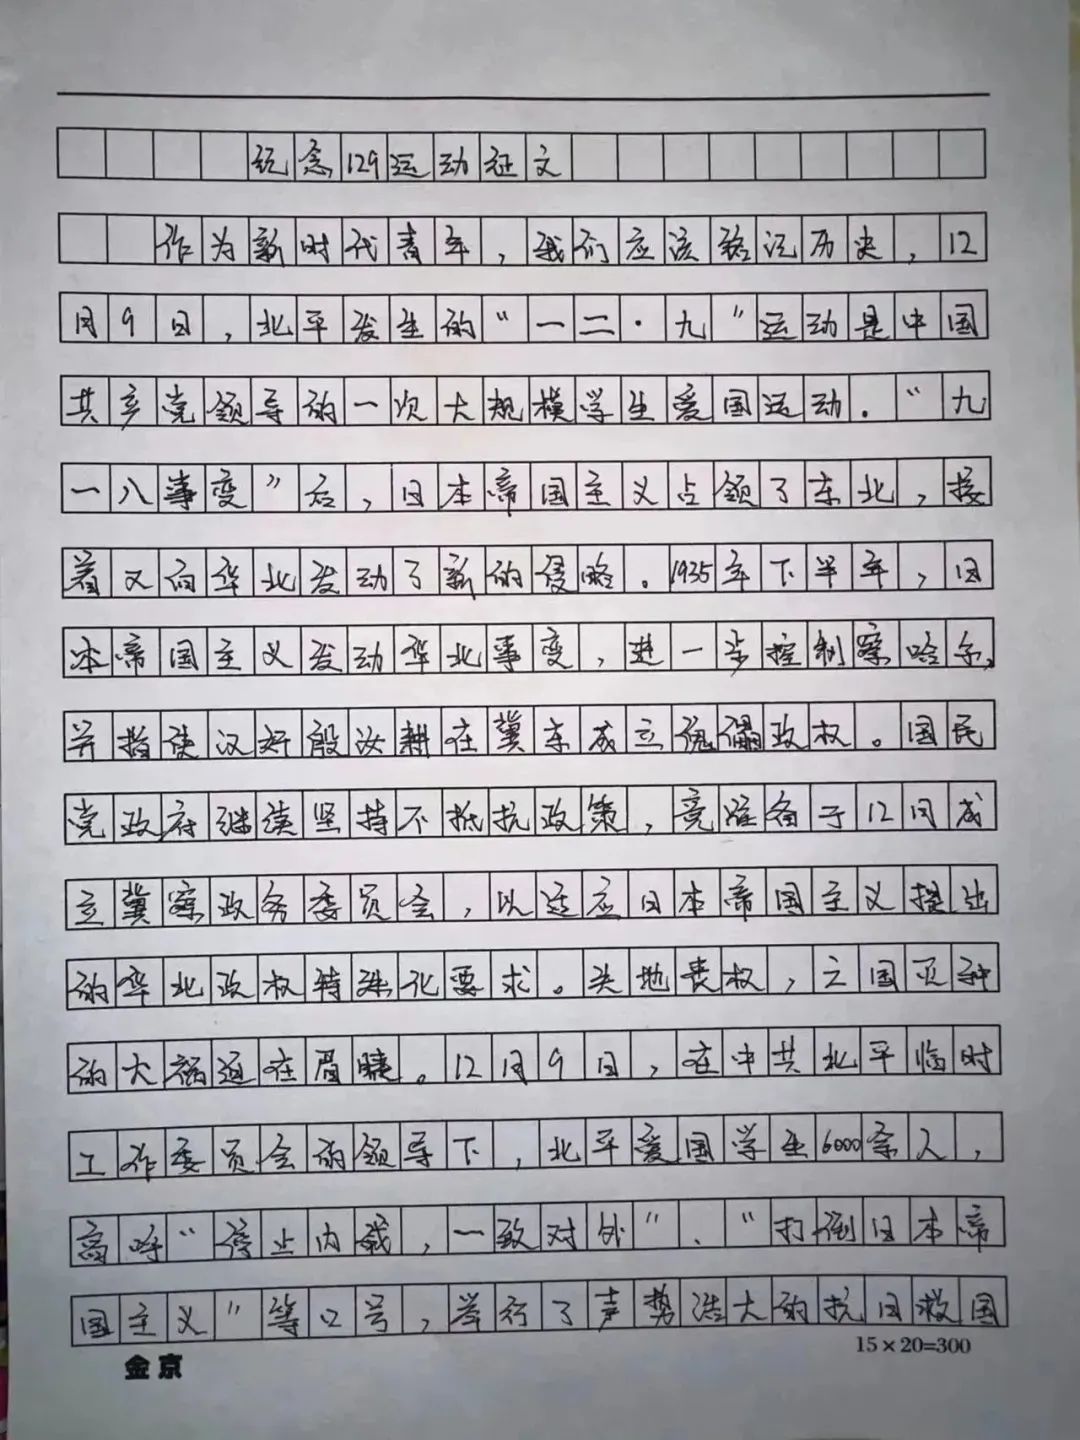 纪念129运动征文
作为新时代青年,我们应该铭记历史,12
月9日,北平发生的“一二·九”运动是中国
共产党领导的一次大规模学生爱国运动.“九
一八事变”后,日本帝国主义占领了东北,接
着又向华北发动了新的侵略。1935年下半年,日
本帝国主义发动华北事变,进一步控制察哈尔,
并指使汉奸殷汝耕在冀东成立傀儡政权。国民
党政府继续坚持不抵抗政策,竟准备于12月成
立冀察政务委员会,以适应日本帝国主义提出
的华北政权特殊化要求。失地丧权,亡国灭种
的大祸迫在眉睫。12月9日,在中共北平临时
工作委员会的领导下,北平爱国学生6000余人,
高呼“停止内战,一致对外”、“打倒日本帝
国主义”等口号,举行了声势浩大的抗日救国
金京
15×20=300